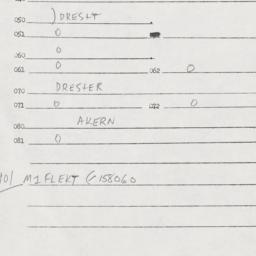 050 ) DRESLT
051 O
O
060
061 O 062 O
070 DRESLER
071 O 072 O
080 AKERN
081 O
M1FLEKT G158060